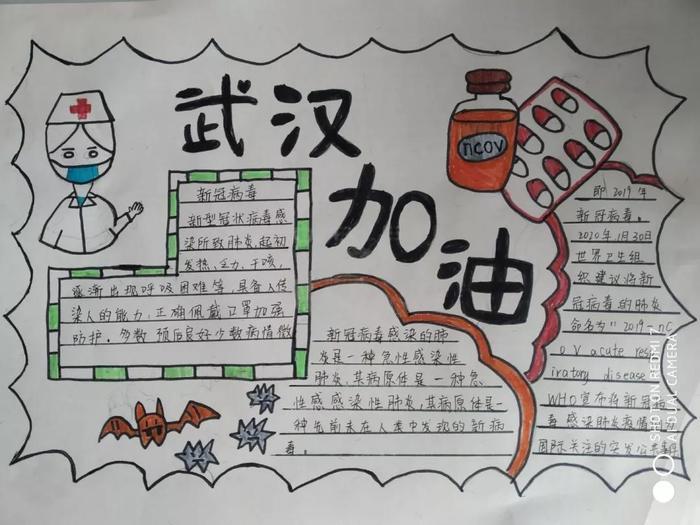 武汉
加油
ncov
新冠病毒
新型冠状病毒感
染所致肺炎,起初
发热,乏力,干咳,
逐渐出现呼吸困难等,具备人传
染人的能力,正确佩戴口罩加强
防护。多数预后良好少数病情微
新冠病毒感染的肺
炎是一种急性感染性
肺炎,其病原体是一种急
性感感染性肺炎,其病原体是一
种先前未在人类中发现的新病
毒。
即2019年
新冠病毒。
2020年1月30日
世界卫生组
织建议将新
冠病毒的肺炎
命名为"2019-nC
oV acute res
iratory disease
WHO宣布将新
毒感染肺炎疫情
国际关注的突发公共事件
SHOT ON REDMI 7
AI DUAL CAMERA